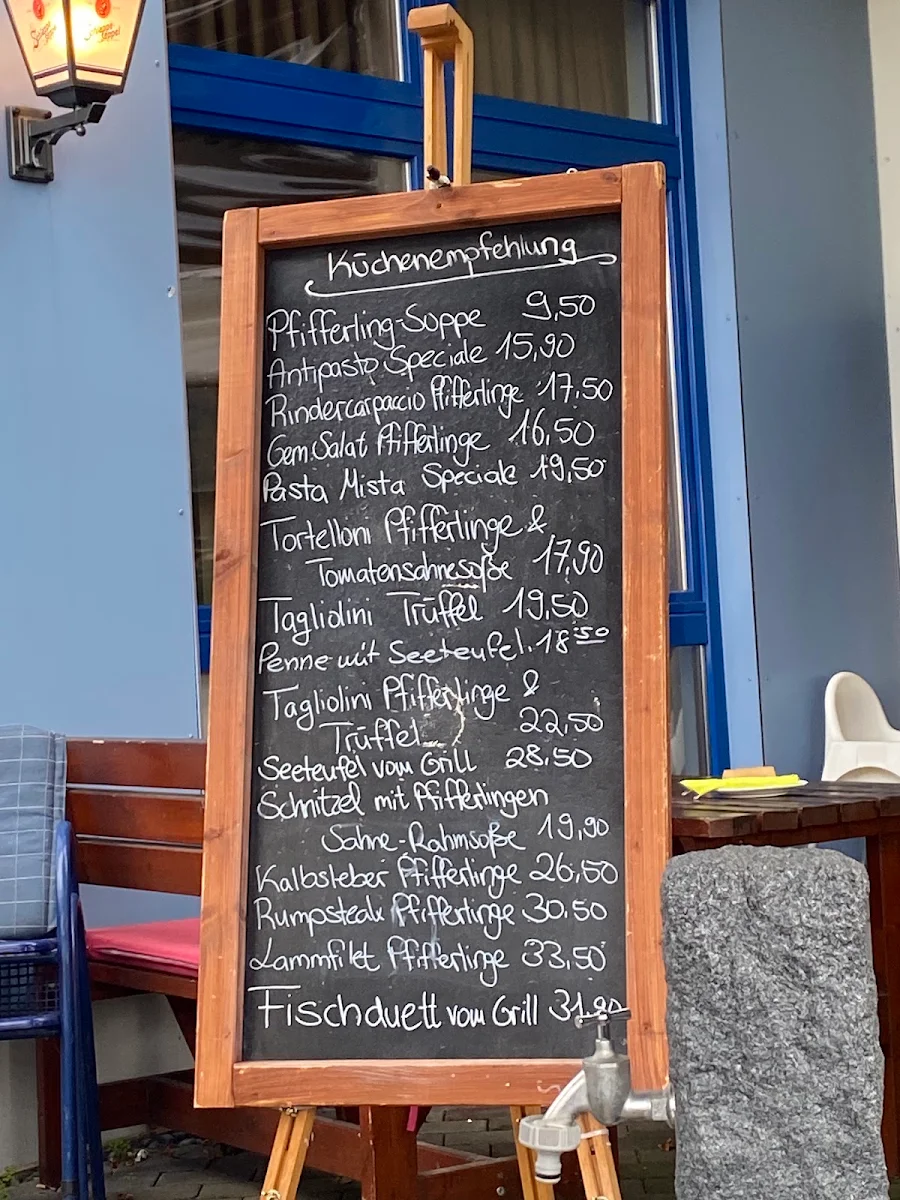 Küchenempfehlung
Pfifferling-Suppe 9,50
Antipasto Speciale 15,90
Rindercarpaccio Pfifferlinge 17,50
Gem. Salat Pfifferlinge 16,50
Pasta Mista Speciale 19,50
Tortelloni Pfifferlinge &
Tomatensahnesoße 17,90
Tagliolini Trüffel 19,50
Penne mit Seeteufel. 18 50
Tagliolini Pfifferlinge &
Trüffel 22,50
Seeteufel vom Grill 28,50
Schnitzel mit Pfifferlingen
Sahne-Rahmsoße 19,90
Kalbsleber Pfifferlinge 26,50
Rumpsteak Pfifferlinge 30.50
Lammfilet Pfifferlinge 33,50
Fischduett vom Grill 31.90